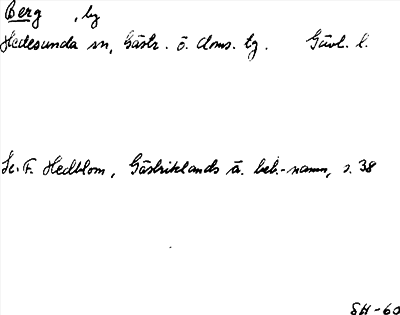 Berg, by
Hedesunda sn, Gästr. ö. doms. tg. Gävl. l.
Se F. Hedblom, Gästriklands ä. beb.-namn, s. 38
SH-60